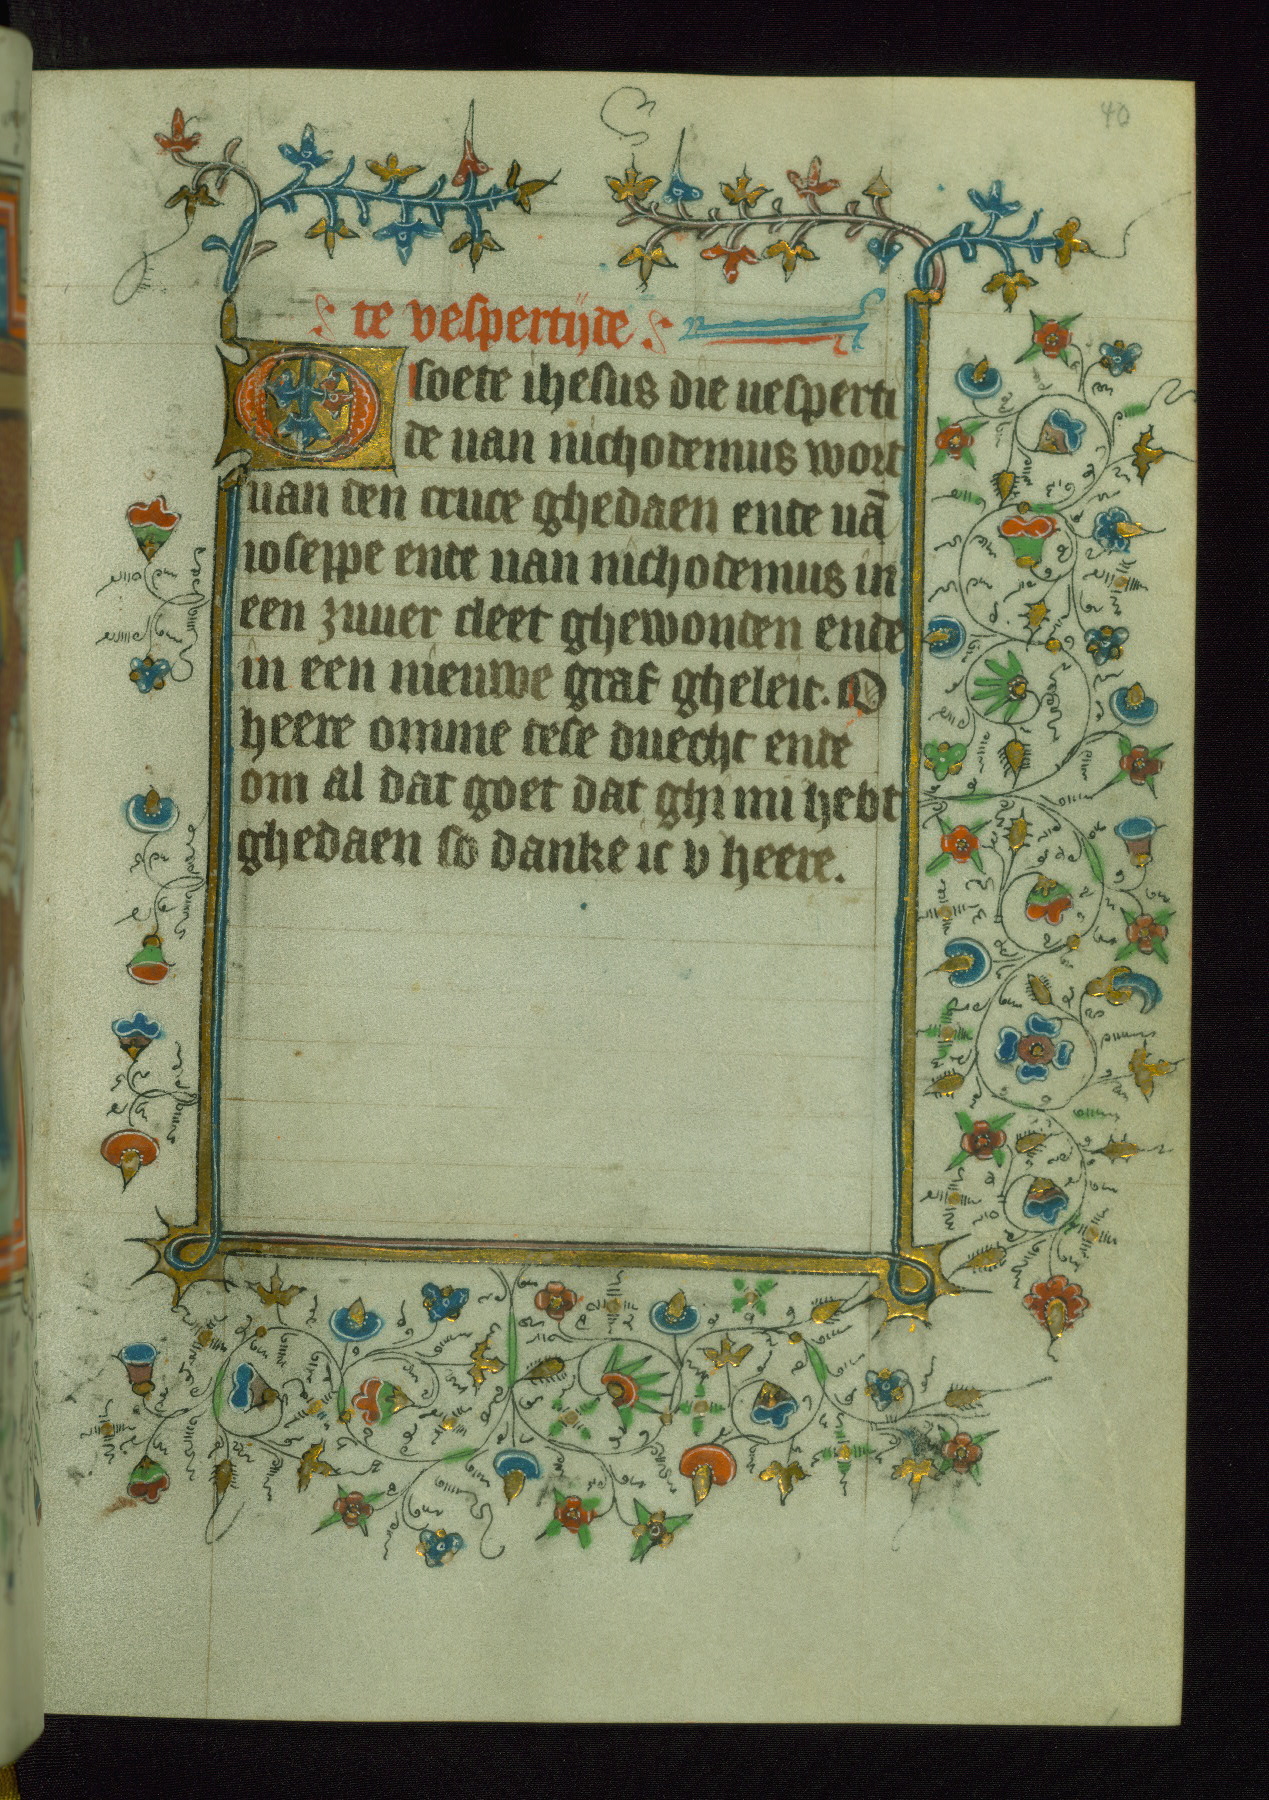 40
te vespertijde
O soete ihesus die uesperti
de uan nichodemus wort
uan den cruce ghedaen ende uā
ioseppe ende uan nichodemus in
een zuuer cleet ghewonden ende
in een nieuwe graf gheleit. O
heere omme dese duecht ende
om al dat goet dat ghi mi hebt
ghedaen so danke ic v heere.